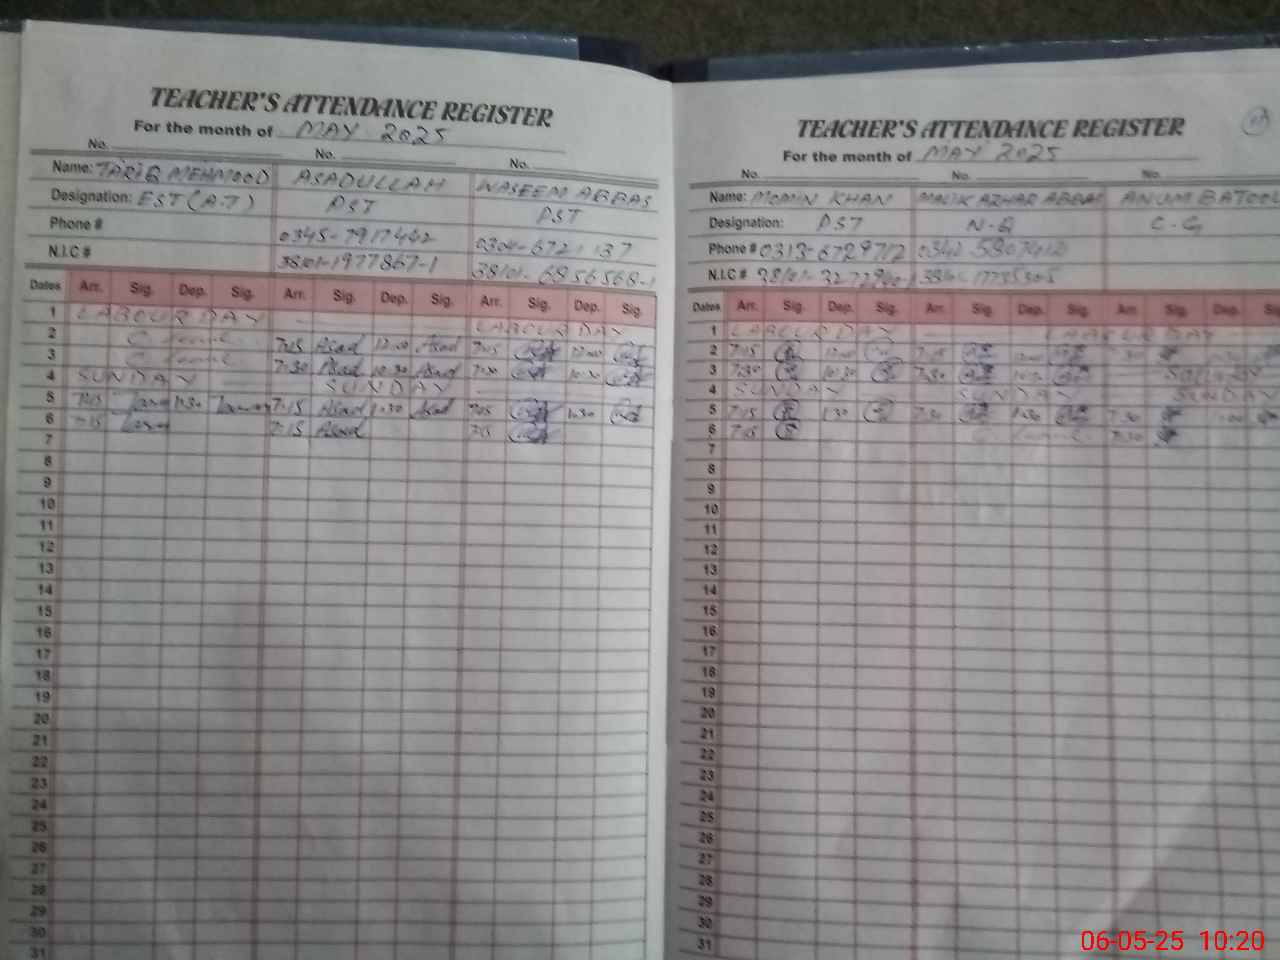 TEACHER'S ATTENDANCE REGISTER
For the month of MAY 2025
No. No. No.
Name: TARIQ MEHMOOD ASADULLAH WASEEM ABBAS
Designation: EST (A.T) PST PST
Phone # 0345-7917442
N.I.C # 38101-1977867-1 38101-6856568-1
Dates Arr. Sig. Dep. Sig. Arr. Sig. Dep. Sig. Arr. Sig. Dep. Sig.
1 LABOUR DAY LABOUR DAY
2 7:15 Asad 12:00 Asad 7:15 12:00
3 7:30 Asad 10:30 Asad 7:30 10:30
4 SUNDAY SUNDAY
5 7:15 1:30 7:15 Asad 1:30 Asad 7:15 1:30
6 7:15 7:15 Asad 7:15
7
8
9
10
11
12
13
14
15
16
17
18
19
20
21
22
23
24
25
26
27
28
29
30
31
TEACHER'S ATTENDANCE REGISTER
For the month of MAY 2025
No. No. No.
Name: MOMIN KHAN MALIK AZHAR ABBAS ANUM BATOOL
Designation: PST N-Q C-G
Phone # 0313-6729712
N.I.C #
Dates Arr. Sig. Dep. Sig. Arr. Sig. Dep. Sig. Arr. Sig. Dep.
1 LABOUR DAY LABOUR DAY
2 7:15 12:00 7:15 12:00 7:30
3 7:30 10:30 7:30 10:30
4 SUNDAY SUNDAY SUNDAY
5 7:15 1:30 7:30 1:30 7:30
6 7:15 7:30
7
8
9
10
11
12
13
14
15
16
17
18
19
20
21
22
23
24
25
26
27
28
29
30
31
06-05-25 10:20